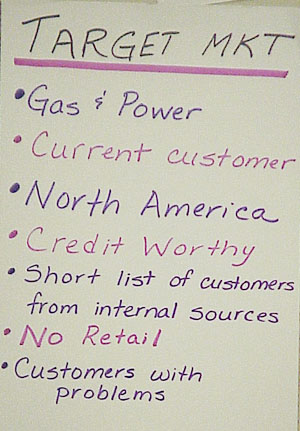 TARGET MKT
• Gas & Power
• Current customer
• North America
• Credit Worthy
• Short list of customers
from internal sources
• No Retail
• Customers with
problems